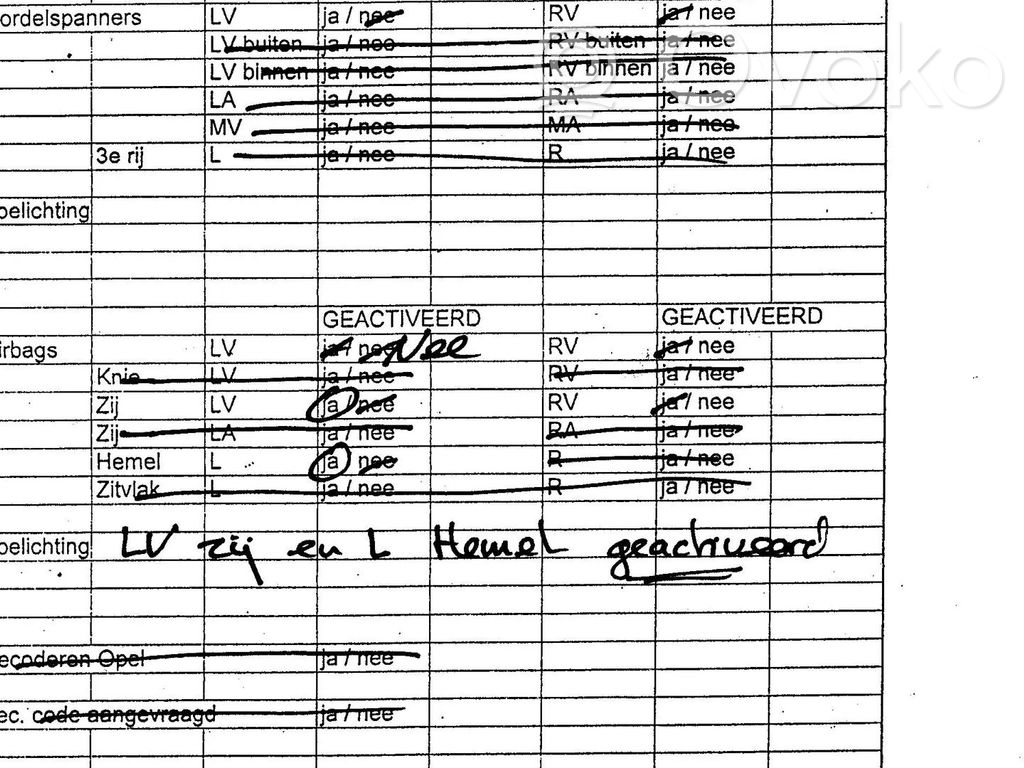 ordelspanners LV ja / nee RV ja / nee
LV buiten ja / nee RV buiten ja / nee
LV binnen ja / nee RV binnen ja / nee
LA ja / nee RA ja / nee
MV ja / nee MA ja / nee
3e rij L ja / nee R ja / nee
oelichting
GEACTIVEERD GEACTIVEERD
irbags LV ja / nee Nee RV ja / nee
Knie LV ja / nee RV ja / nee
Zij LV ja / nee RV ja / nee
Zij LA ja / nee RA ja / nee
Hemel L ja / nee R ja / nee
Zitvlak L ja / nee R ja / nee
oelichting LV zij en L Hemel geactiveerd
ecoderen Opel ja / nee
ec. code aangevraagd ja / nee
Ovoko